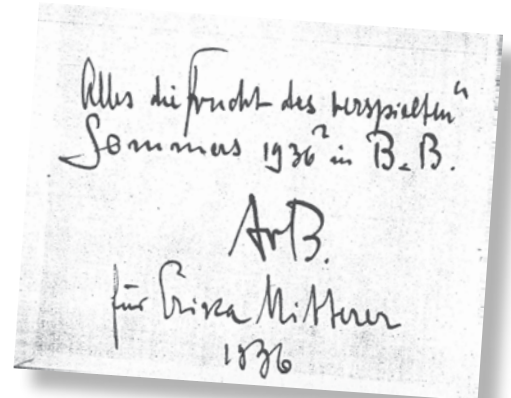 Alles die Frucht des verspielten“
Sommers 1936? in B.B.
ArB.
für Erika Mitterer
1936